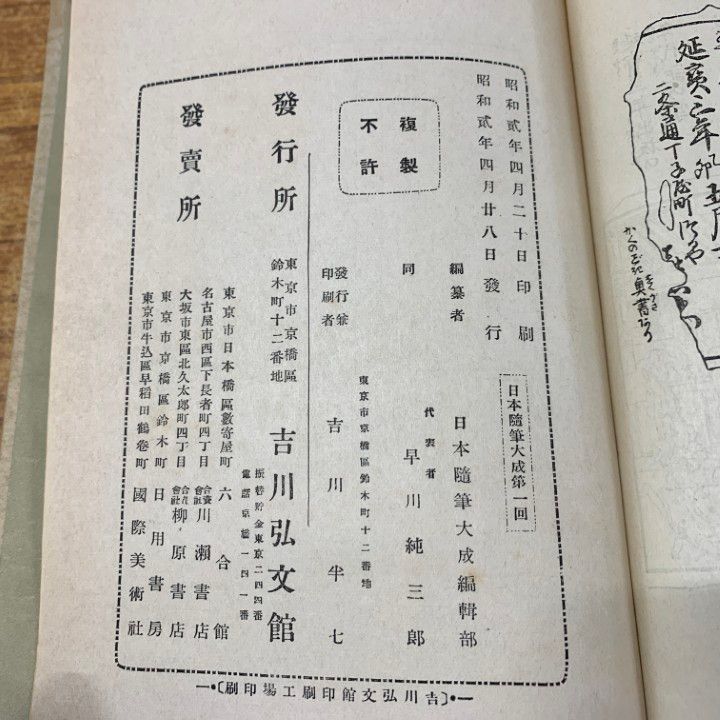 昭和貳年四月二十日印刷
昭和貳年四月廿八日發行
日本隨筆大成第一回
複製
不許
編纂者 日本隨筆大成編輯部
同 代表者 早川純三郎
東京市京橋區鈴木町十二番地
發行兼
印刷者 吉川半七
發行所 東京市京橋區
鈴木町十二番地 吉川弘文館
振替貯金東京二四四番
電話京橋一四一番
發賣所
東京市日本橋區數寄屋町 六合館
名古屋市西區下長者町四丁目 合資會社 川瀬書店
大坂市東區北久太郎町四丁目 合資會社 柳原書店
東京市京橋區鈴木町 日用書房
東京市牛込區早稻田鶴卷町 國際美術社
(吉川弘文館印刷工場印刷)